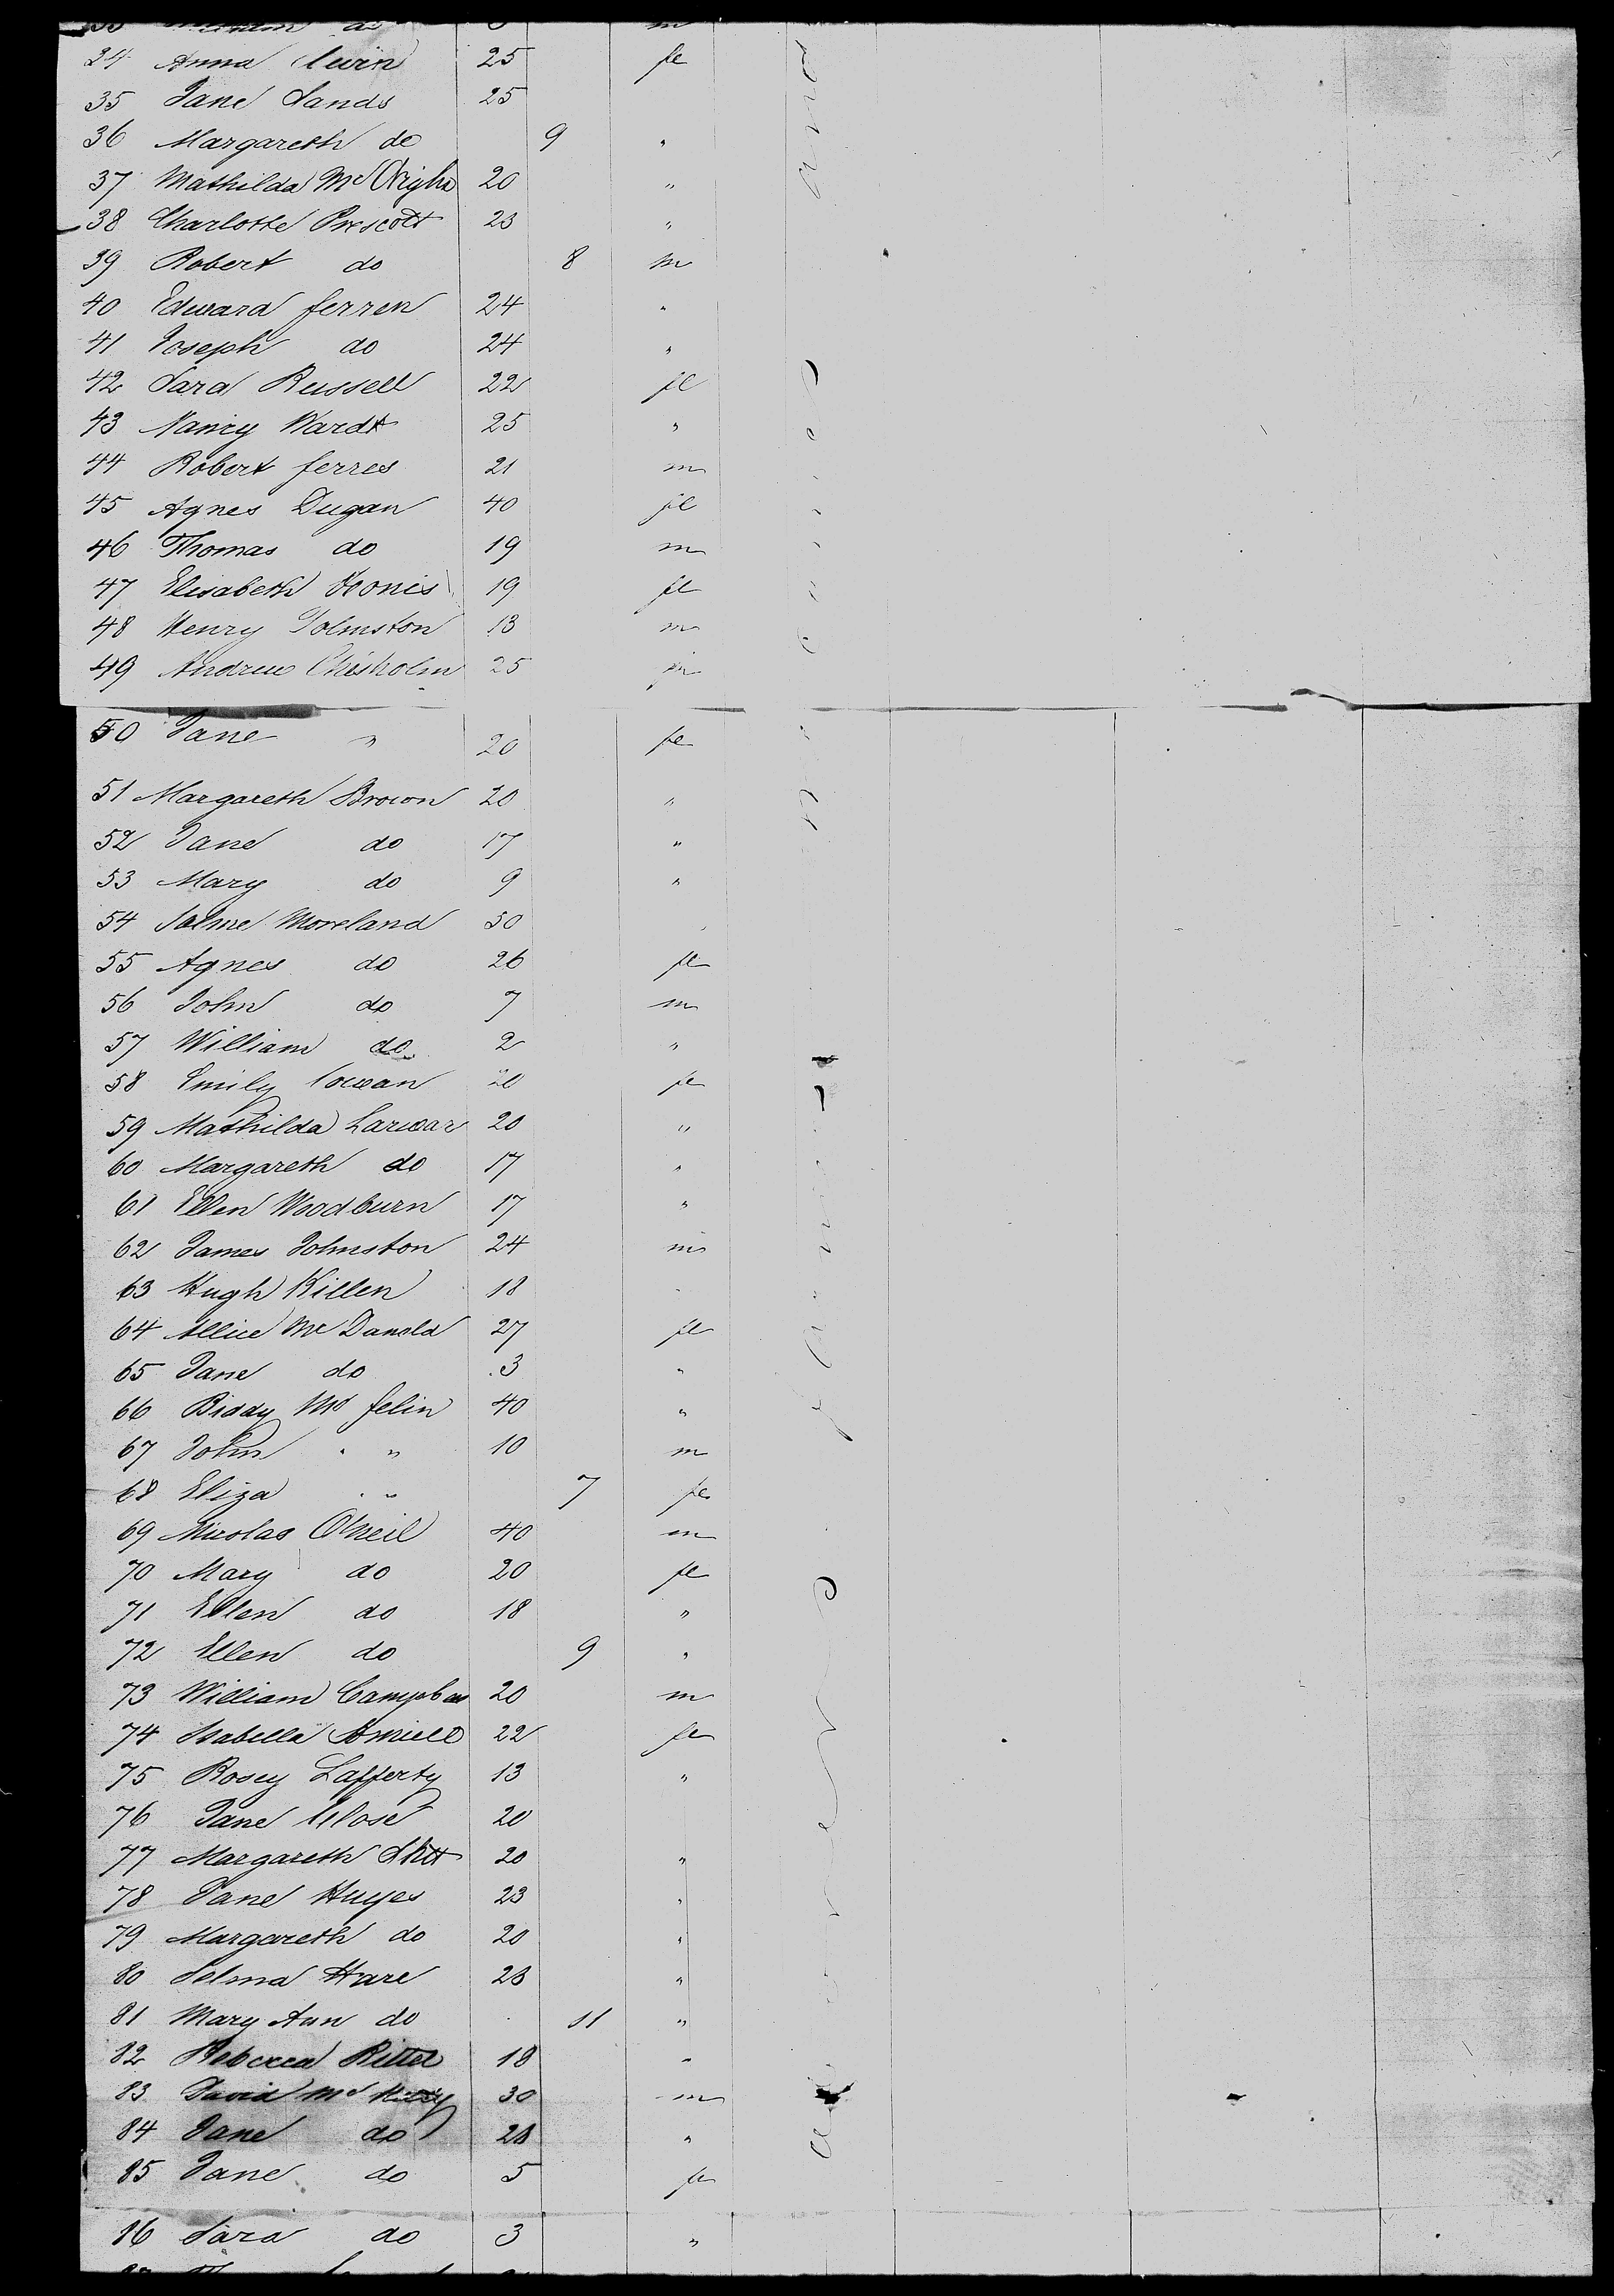 34 Anna 25 fe
35 Jane Sands 25
36 Margareth do 9 "
37 Mathilda Mc 20 "
38 Charlotte Prescott 23 "
39 Robert do 8 m
40 Edward ferren 24 "
41 Joseph do 24 "
42 Sara Russell 22 fe
43 Nancy Wardt 25 "
44 Robert ferres 21 m
45 Agnes Dugan 40 fe
46 Thomas do 19 m
47 Elisabeth 19 fe
48 Henry Johnston 13 m
49 Andrew Chisholm 25 m
50 Jane " 20 fe
51 Margareth Brown 20 "
52 Jane do 17 "
53 Mary do 9 "
54 Moreland 30
55 Agnes do 26 fe
56 John do 7 m
57 William do 2 "
58 Emily Cowan 20 fe
59 Mathilda Larwar 20 "
60 Margareth do 17 "
61 Ellen Woodburn 17 "
62 James Johnston 24 m
63 Hugh Killen 18
64 Allice Mc Danold 27 fe
65 Jane do 3 "
66 Biddy Mc felin 40 "
67 John " " 10 m
68 Eliza " " 7 fe
69 Nicolas O'Neil 40 m
70 Mary do 20 fe
71 Ellen do 18 "
72 Ellen do 9 "
73 William 20 m
74 Isabella 22 fe
75 Rosey Lafferty 13 "
76 Jane Close 20
77 Margareth 20 "
78 Jane Huyes 23 "
79 Margareth do 20 "
80 Selma Hare 23 "
81 Mary Ann do 11 "
82 Rebecca 18 "
83 David Mc 30 m
84 Jane do 28 "
85 Jane do 5 fe
86 Sara do 3 "